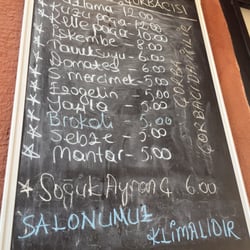 ÇORBACISI
Kuzu paça - 10.00
Kelle paça - 10.00
İşkembe - 8.00
Tavuksuyu - 6.00
Domates - 5.00
S. mercimek - 5.00
Ezogelin - 5.00
Yayla - 5.00
Brokoli - 5.00
Sebze - 5.00
Mantar - 5.00
Soğuk Ayran Ç 6.00
SALONUMUZ
KLİMALIDIR
ÇORBA
ÇORBACIDA İÇİLİR